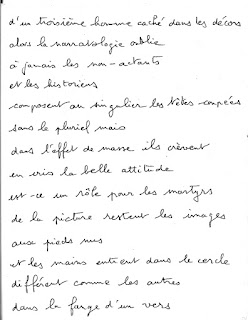 d'un troisième homme caché dans les décors
alors la narratologie oublie
à jamais les non-actants
et les historiens
composent au singulier les têtes coupées
sans le pluriel mais
dans l'effet de masse ils crèvent
en cris la belle attitude
est-ce un rôle pour les martyrs
de la picture restent les images
aux pieds nus
et les mains entrent dans le cercle
différent comme les autres
dans la farge d'un vers